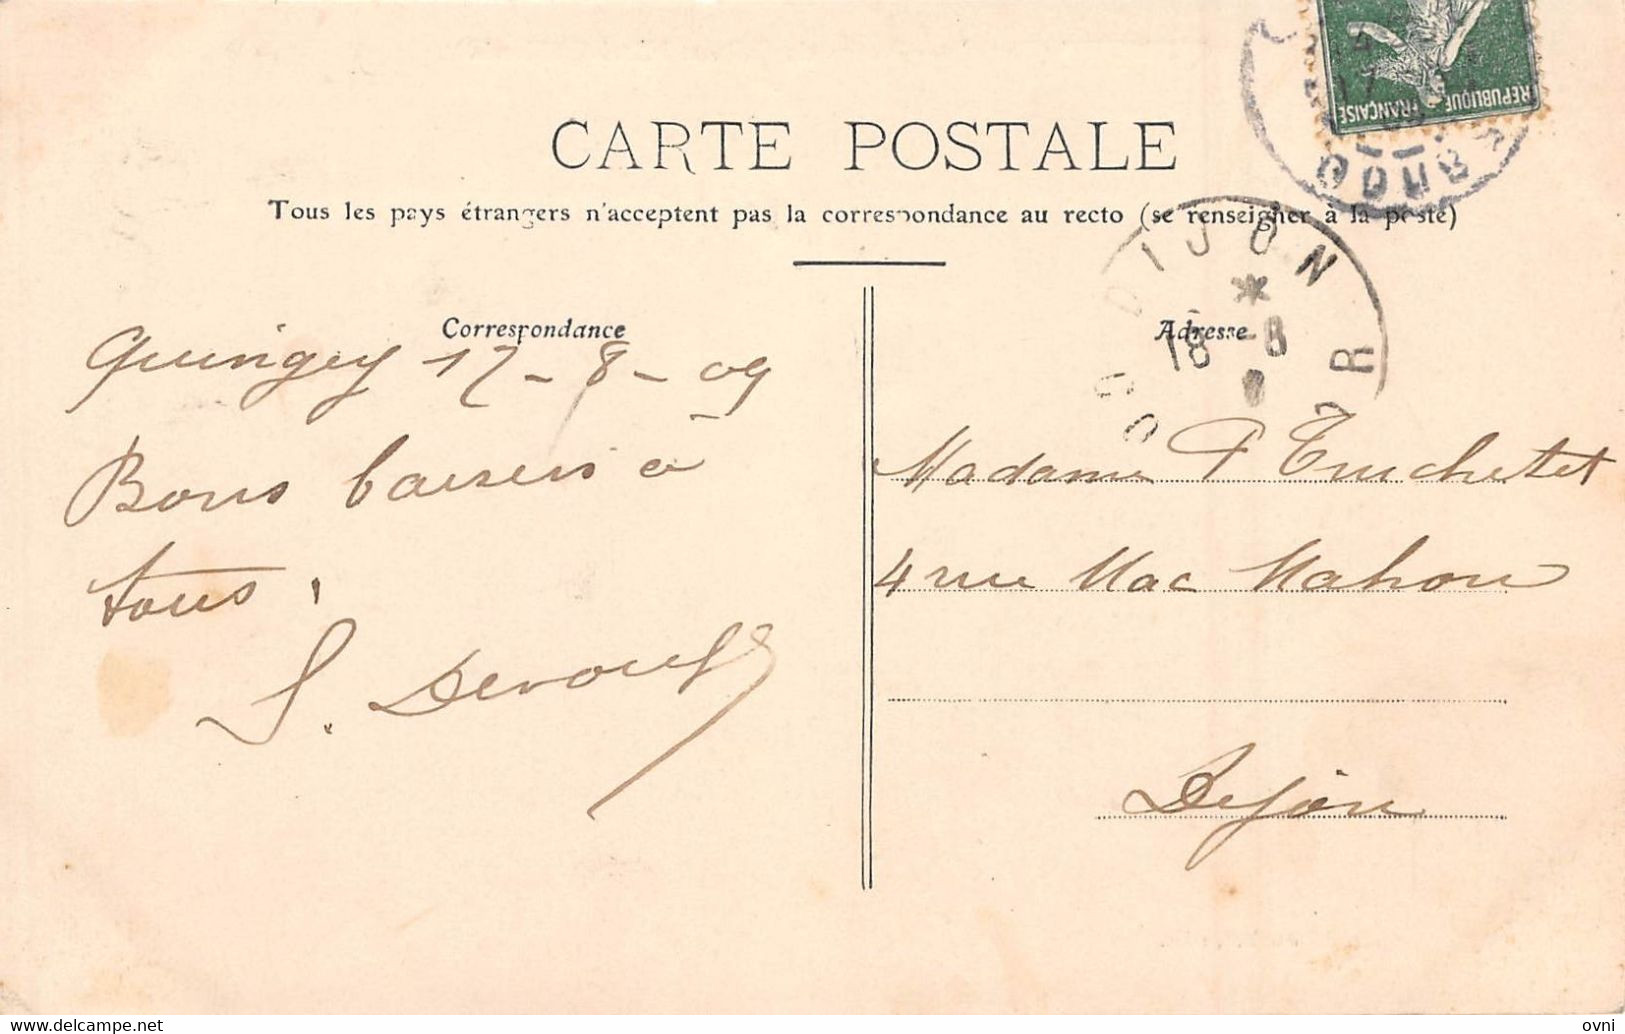 REPUBLIQUE FRANÇAISE
DOUBS
CARTE POSTALE
Tous les pays étrangers n'acceptent pas la correspondance au recto (se renseigner à la poste)
DIJON
18 -8
COTE D'OR
Correspondance
Quingey 17-8-09
Bons baisers à
tous.
Adresse
Madame P Truchetet
4 rue Mac Mahon
Dijon
https://www.delcampe.net
ovni